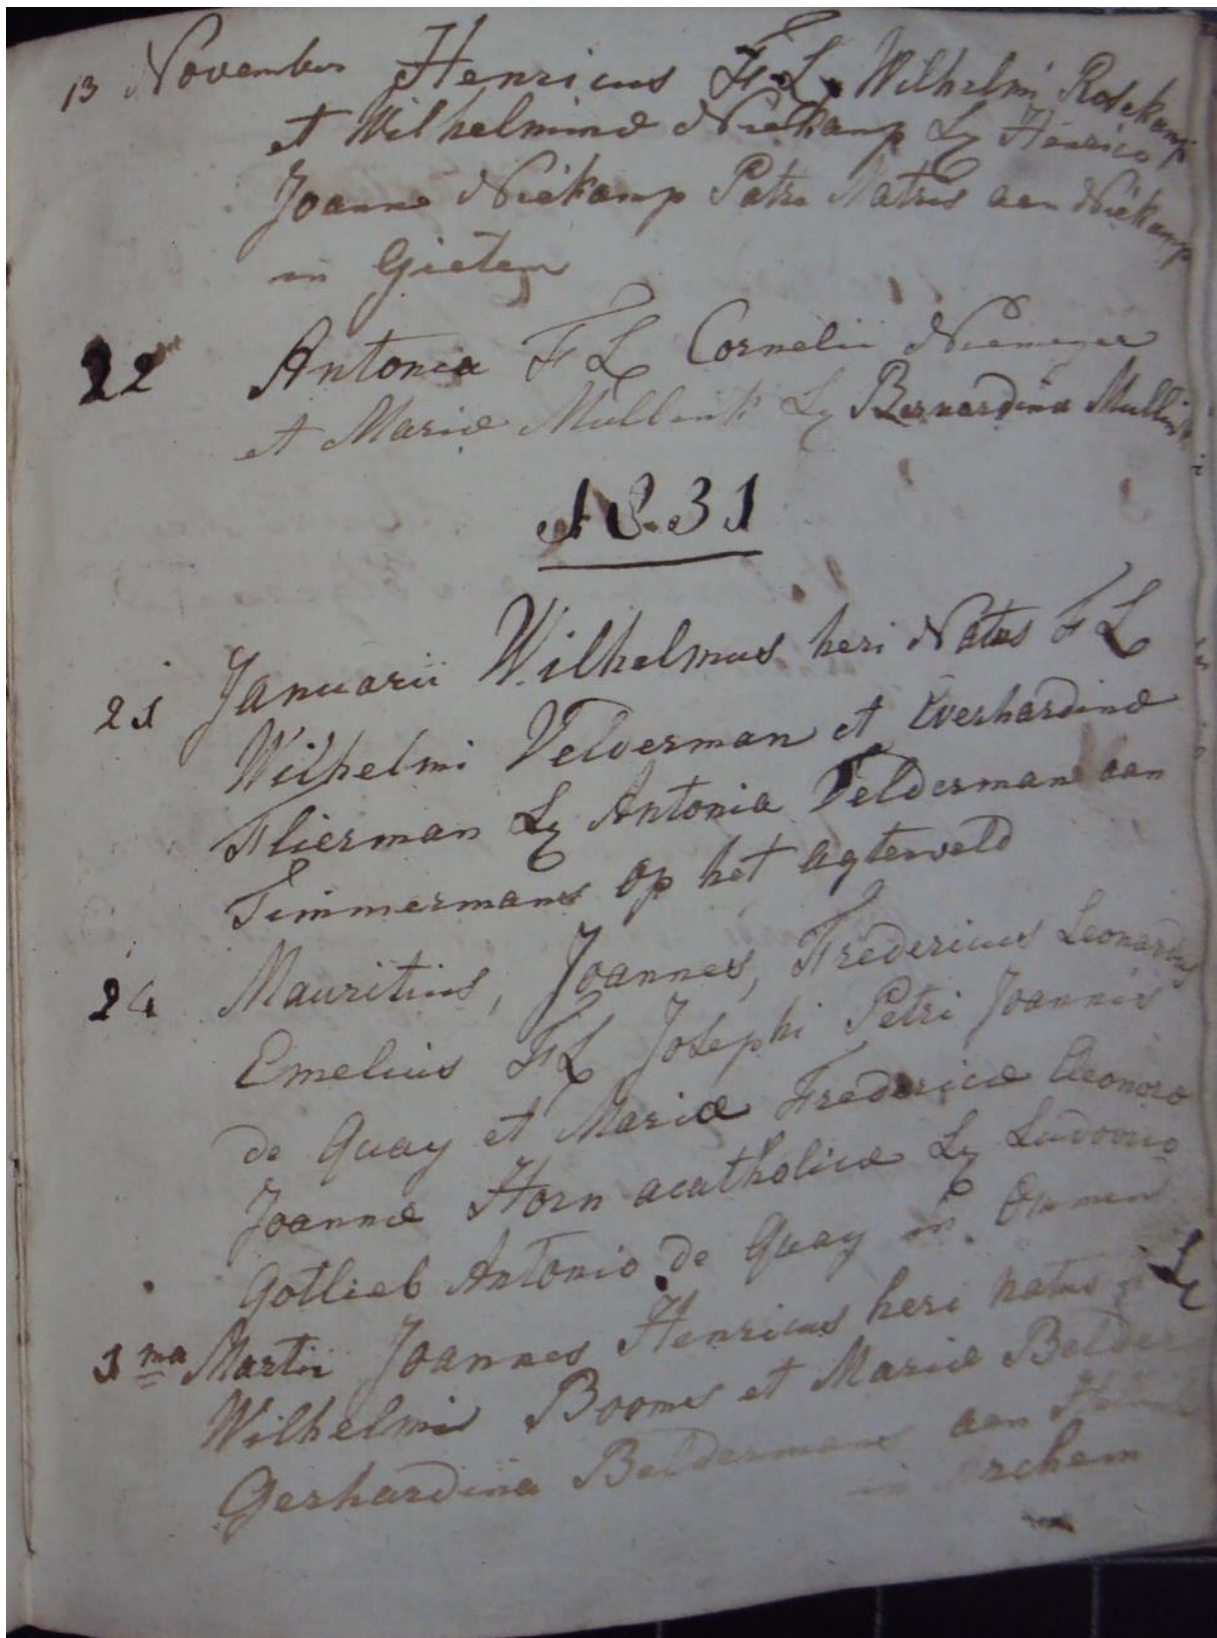 13 November Henricus F L Wilhelmi Rosekamp
et Wilhelminæ Niekamp Lq Henrico
Joanne Niekamp Patre Matris aan Niekamp
in Gieten
22 Antonia F L Cornelii Niemeyer
et Mariæ Mullink Lq Bernardina Mullink
1831
21 Januarii Wilhelmus heri Natus F L
Wilhelmi Velderman et Everhardinæ
Flierman Lq Antonia Velderman aan
Timmermans op het agterveld
24 Mauritius, Joannes, Fredericus Leonardus
Emelius F L Josephi Petri Joannis
de Quay et Mariæ Fredericæ Eleonoræ
Joannæ Horn acatholicæ Lq Ludovico
Gotlieb Antonio de Quay in Ommen
1ma Martii Joannes Henricus heri natus F L
Wilhelmi Booms et Mariæ Belder
Gerhardina Beldermans aan
in Archem